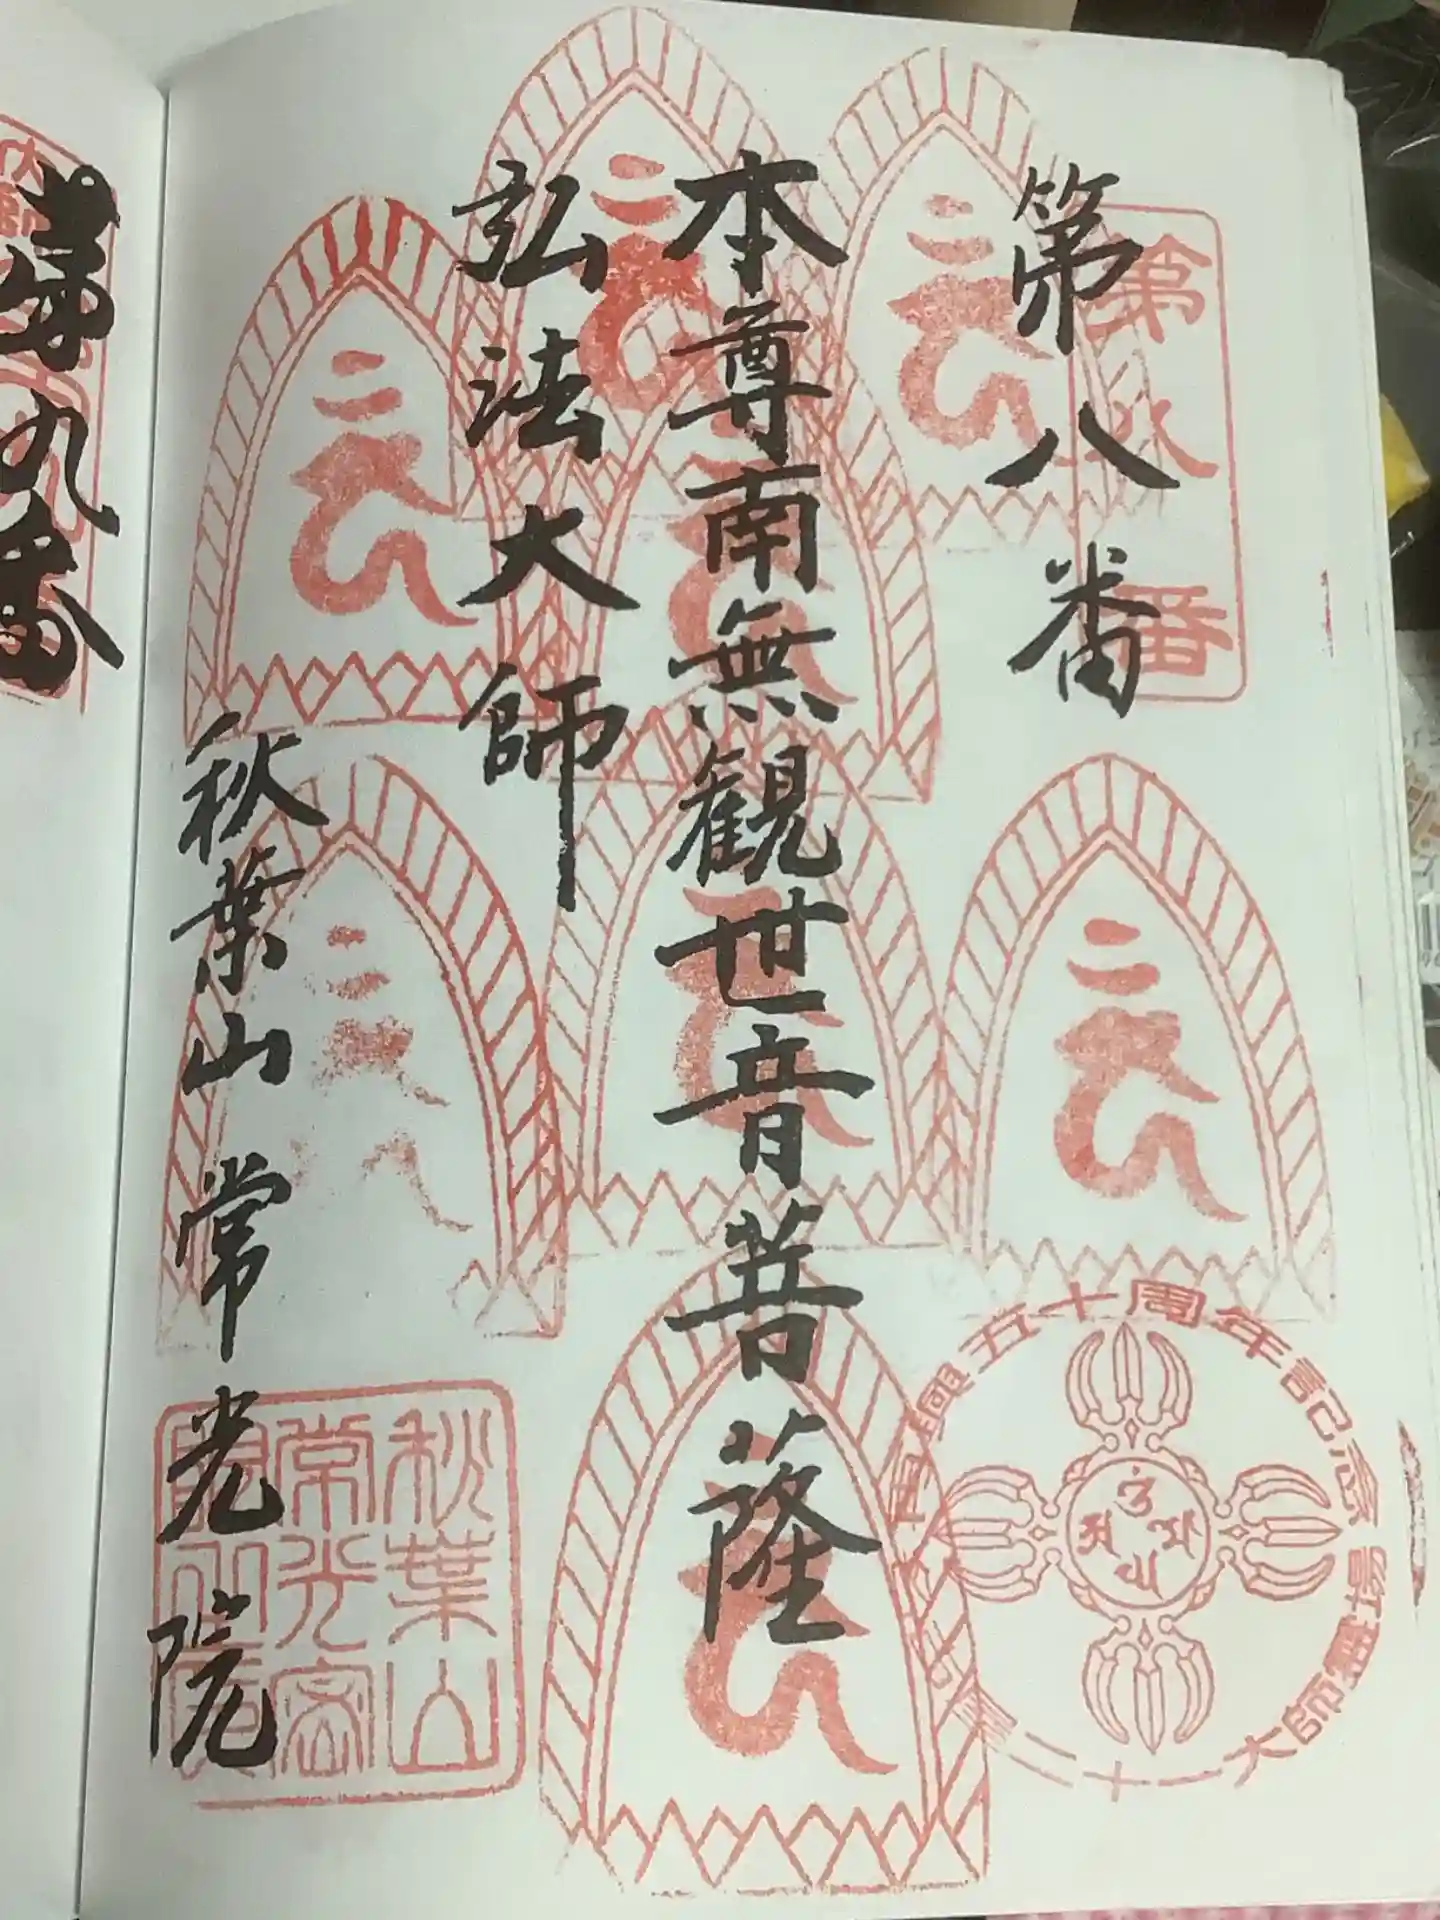 第八番
第八番
本尊南無観世音菩薩
弘法大師
秋葉山 常光院
秋葉山
常光密
再興五十周年記念
大師霊跡
二十一
第九番